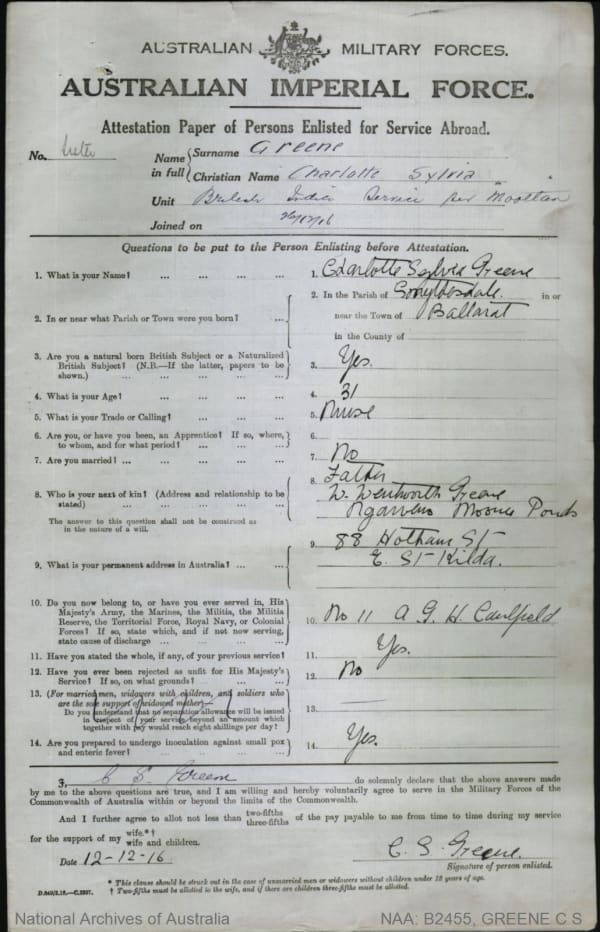 AUSTRALIAN MILITARY FORCES.
AUSTRALIAN IMPERIAL FORCE.
Attestation Paper of Persons Enlisted for Service Abroad.
No. Sister
Name in full { Surname Greene
Christian Name Charlotte Sylvia
Unit British Indian Service per Mooltan
Joined on
Questions to be put to the Person Enlisting before Attestation.
1. What is your Name? ... ... ... ... 1. Charlotte Sylvia Greene
2. In or near what Parish or Town were you born? ... 2. In the Parish of Smythesdale in or
near the Town of Ballarat
in the County of
3. Are you a natural born British Subject or a Naturalized
British Subject? (N.B.—If the latter, papers to be
shown.) ... ... ... ... 3. Yes.
4. What is your Age? ... ... ... 4. 31
5. What is your Trade or Calling? ... ... ... 5. Nurse
6. Are you, or have you been, an Apprentice? If so, where,
to whom, and for what period? ... ... ... 6.
7. Are you married? ... ... ... ... 7. No
8. Who is your next of kin? (Address and relationship to be
stated) ... ... ... ... 8. Father
W. Wentworth Greene
Moonee Ponds
The answer to this question shall not be construed as
in the nature of a will.
9. What is your permanent address in Australia? ... ... 9. 88 Hotham St
E. St Kilda.
10. Do you now belong to, or have you ever served in, His
Majesty's Army, the Marines, the Militia, the Militia
Reserve, the Territorial Force, Royal Navy, or Colonial
Forces? If so, state which, and if not now serving,
state cause of discharge ... ... ... 10. No 11 A G H Caulfield
11. Have you stated the whole, if any, of your previous service? 11. Yes.
12. Have you ever been rejected as unfit for His Majesty's
Service? If so, on what grounds? ... ... ... 12. No
13. (For married men, widowers with children, and soldiers who
are the sole support of widowed mother)—
Do you understand that no separation allowance will be issued
in respect of your service beyond an amount which
together with pay would reach eight shillings per day? 13. —
14. Are you prepared to undergo inoculation against small pox
and enteric fever? ... ... ... ... 14. Yes.
I, C S Greene do solemnly declare that the above answers made
by me to the above questions are true, and I am willing and hereby voluntarily agree to serve in the Military Forces of the
Commonwealth of Australia within or beyond the limits of the Commonwealth.
And I further agree to allot not less than two-fifths three-fifths of the pay payable to me from time to time during my service
for the support of my wife.*† wife and children.
Date 12-12-16. C. S. Greene.
Signature of person enlisted.
* This clause should be struck out in the case of unmarried men or widowers without children under 18 years of age.
† Two-fifths must be allotted to the wife, and if there are children three-fifths must be allotted.
National Archives of Australia NAA: B2455, GREENE C S